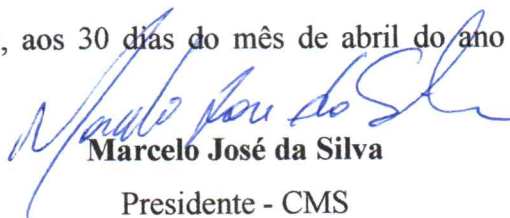 , aos 30 dias do mês de abril do ano
Marcelo José da Silva
Marcelo José da Silva
Presidente - CMS